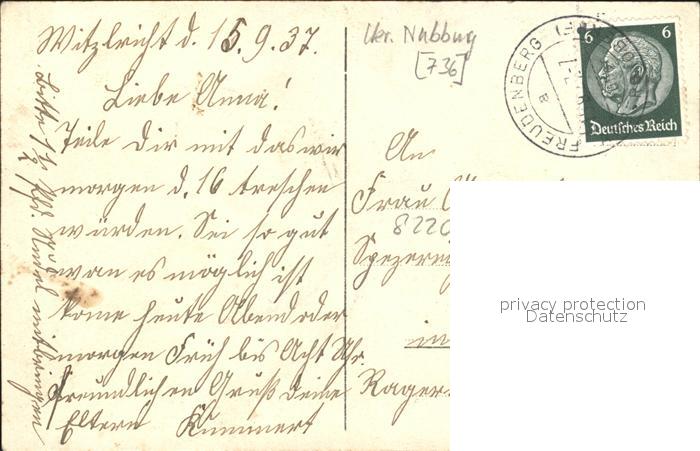 Witzlricht d. 15.9.37.
Liebe Anna!
Teile Dir mit das wir
morgen d. 16 treschen
würden. Sei so gut
wan es möglich ist
kome heute Abend oder
morgen Früh bis Acht Uhr.
Freundlichen Gruß deine
Eltern Kummert
Bitte 1 1/2 Pfd. Nudel mitbringen
Nabburg
[736]
FREUDENBERG
a
6 6
Deutsches Reich
An
Frau
8220
Spezerei
in
Rager
privacy protection
Datenschutz